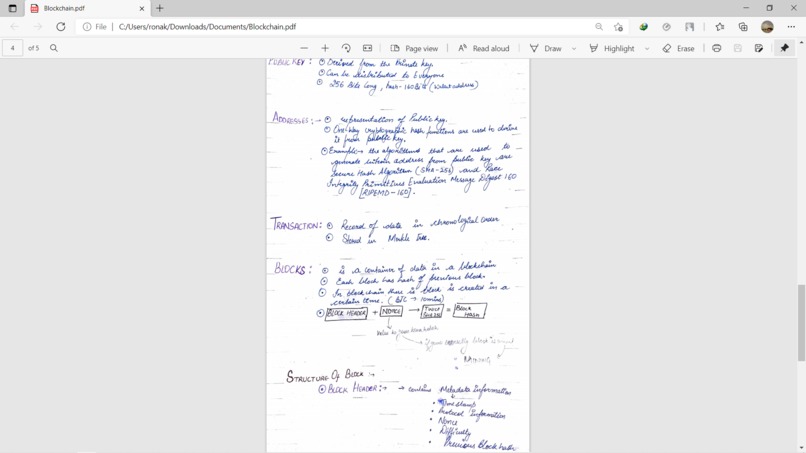 Blockchain.pdf
File
C:/Users/ronak/Downloads/Documents/Blockchain.pdf
4 of 5
Page view
Read aloud
Draw
Highlight
Erase
PUBLIC KEY : Derived from the Private key.
Can be distributed to Everyone
256 Bits long, hash - 160 Bits (Wallet address)
ADDRESSES :- representation of Public key.
One-way cryptographic hash functions are used to derive
it from public key.
Example the algorithms that are used to
generate bitcoin address from public key are
Secure Hash Algorithm (SHA-256) and Race
Integrity Primitives Evaluation Message Digest 160
[RIPEMD-160].
TRANSACTION: Record of data in chronological order
Stored in Merkle Tree.
BLOCKS : is a container of data in a blockchain
Each block has hash of previous block.
In blockchain there is block is created in a
certain time. (BTC → 10mins)
BLOCK HEADER + NONCE → Twice = BLOCK
Hash
if guess correctly block is
STRUCTURE OF BLOCK :-
BLOCK HEADER :- → contains Metadata information
Time stamp
Protocol information
Nonce
Difficulty
Previous Block hash